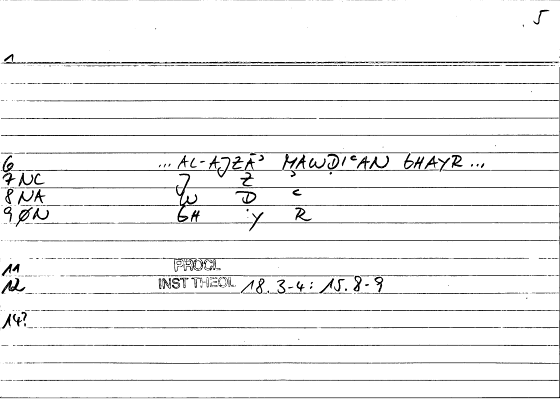 5
1
6 ... AL-AJZĀʾ MAWḌIʿAN GHAYR ...
7 NC J Z ʾ
8 NA W Ḍ ʿ
9 ØN GH Y R
11 PROCL
12 INST THEOL 18.3-4: 15.8-9
14?